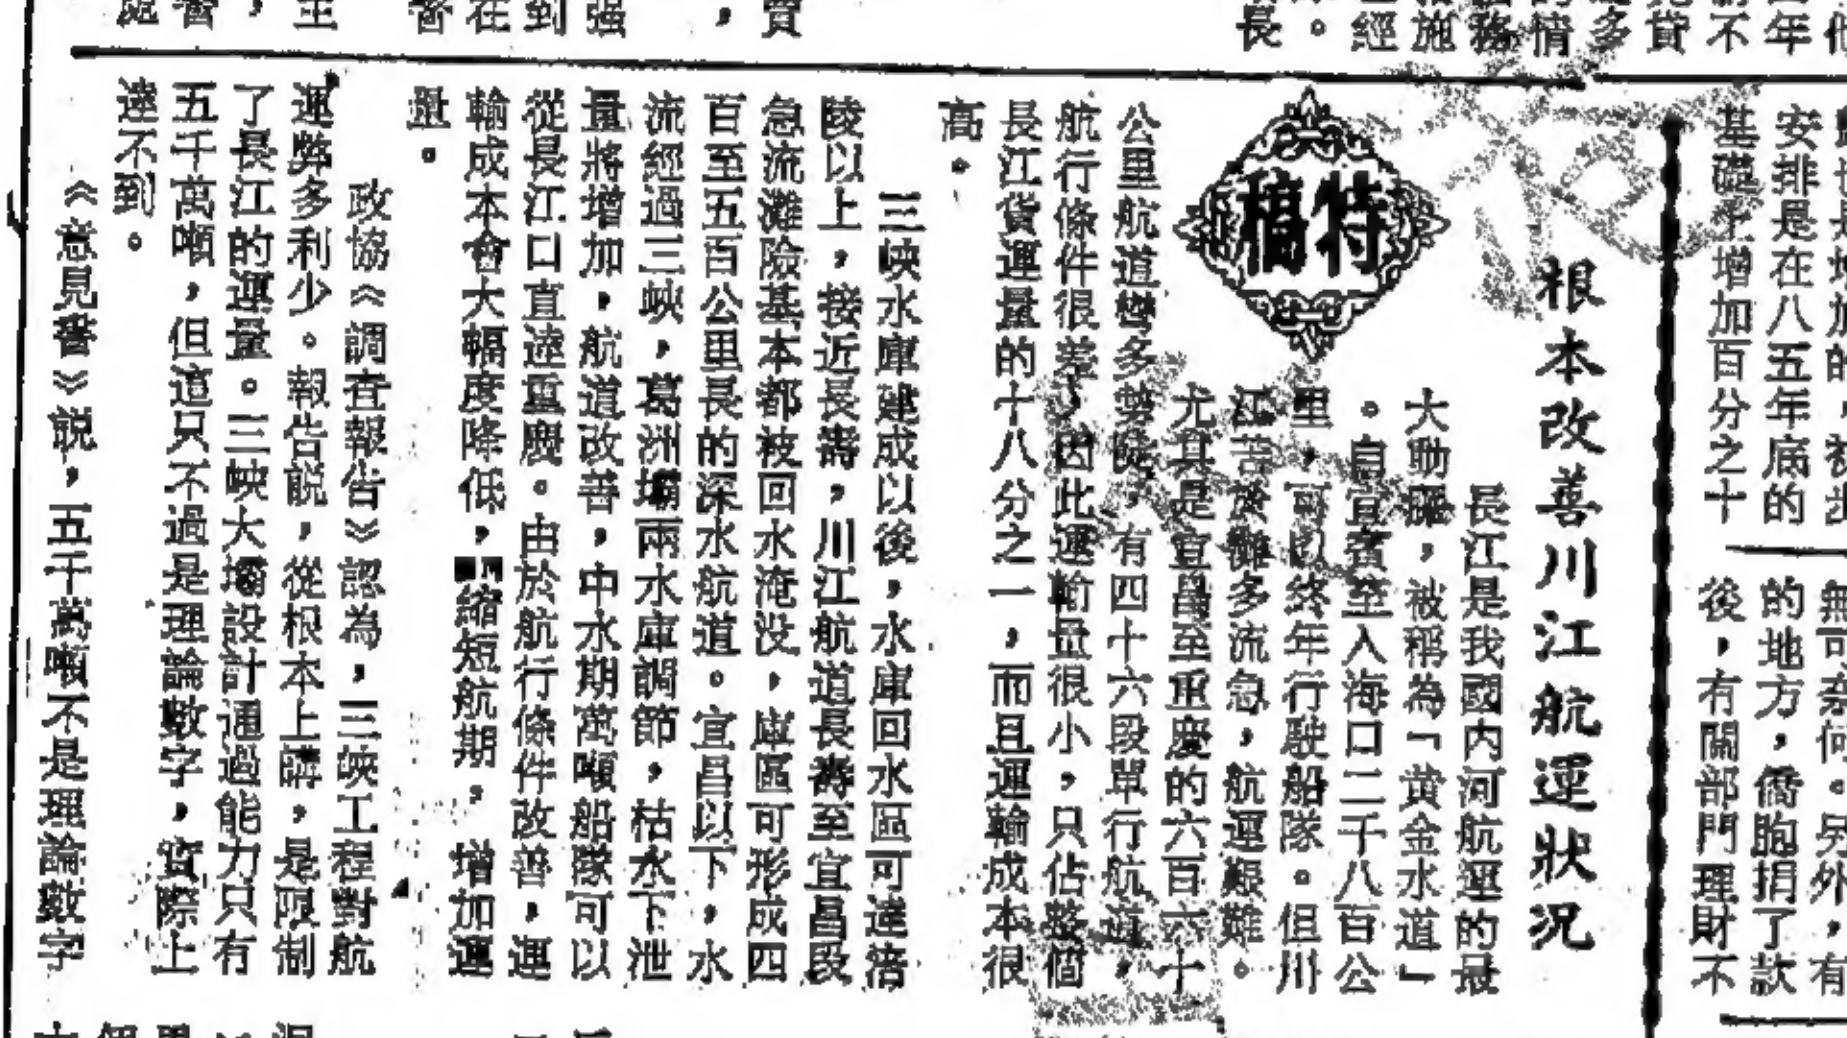 安排是在八五年底的
基礎上增加百分之十
無可奈何。另外，有
的地方，僑胞捐了款
後，有關部門理財不
根本改善川江航運狀況
特稿
長江是我國内河航運的最
大動脈，被稱為「黄金水道」
。自宜賓至入海口二千八百公
里，可以終年行駛船隊。但川
江苦於灘多流急，航運艱難。
尤其是宜昌至重慶的六百六十
公里航道彎多勢陡，有四十六段單行航道，
航行條件很差，因此運輸量很小，只佔整個
長江貨運量的十八分之一，而且運輸成本很
高。
三峽水庫建成以後，水庫回水區可達涪
陵以上，接近長壽，川江航道長壽至宜昌段
急流灘險基本都被回水淹没，庫區可形成四
百至五百公里長的深水航道。宜昌以下，水
流經過三峽，葛洲壩兩水庫調節，枯水下泄
量將增加，航道改善，中水期萬噸船隊可以
從長江口直達重慶。由於航行條件改善，運
輸成本會大幅度降低，縮短航期，增加運
量。
政協《調查報告》認為，三峽工程對航
運弊多利少。報告説，從根本上講，是限制
了長江的運量。三峽大壩設計通過能力只有
五千萬噸，但這只不過是理論數字，實際上
達不到。
《意見書》説，五千萬噸不是理論數字